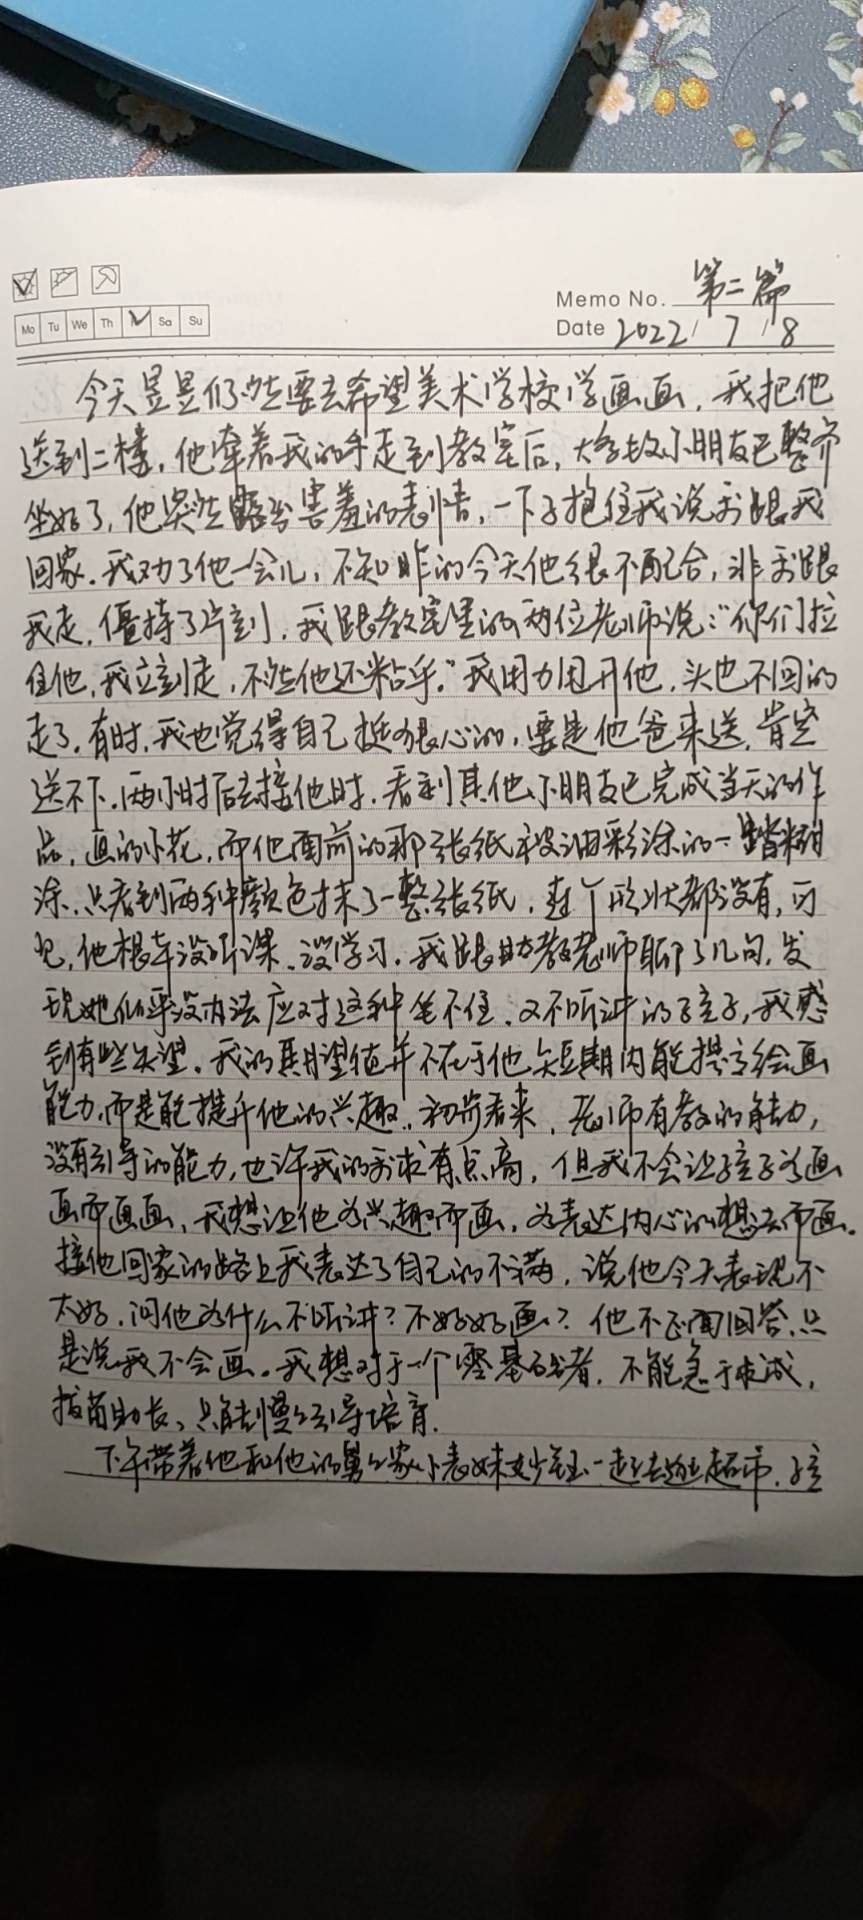 Memo No. 第二篇
Mo Tu We Th Sa Su
Date 2022/7/8
今天昱昱仍然要去希望美术学校学画画，我把他
送到二楼，他牵着我的手走到教室后，大多数小朋友已整齐
坐好了，他突然露出害羞的表情，一下子抱住我说要跟我
回家。我劝了他一会儿，不知咋的今天他很不配合，非要跟
我走，僵持了片刻，我跟教室里的两位老师说："你们拉
住他，我立刻走，不然他还粘乎。"我用力甩开他，头也不回的
走了。有时，我也觉得自己挺狠心的，要是他爸来送，肯定
送不下。两小时后去接他时，看到其他小朋友已完成当天的作
品，画的小花，而他面前的那张纸被油彩涂的一踏糊
涂，只看到两种颜色抹了一整张纸，连丫形状都没有，可
见，他根本没听课、没学习。我跟助教老师聊了几句，发
现她似乎没办法应对这种坐不住、又不听讲的孩子，我感
到有些失望。我的期望值并不在于他短期内能提高绘画
能力，而是能提升他的兴趣。初步看来，老师有教的能力，
没有引导的能力，也许我的要求有点高，但我不会让孩子为画
画而画画，我想让他为兴趣而画，为表达内心的想法而画。
接他回家的路上我表达了自己的不满，说他今天表现不
太好，问他为什么不听讲？不好好画？他不正面回答，只
是说我不会画。我想对于一个零基础者，不能急于求成，
拔苗助长，只能慢慢引导培育。
下午带着他和他的舅舅家小表妹一起去逛超市，孩